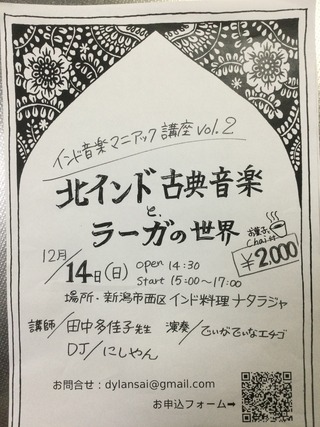 インド音楽マニアック講座 vol.2
北インド古典音楽
と、
ラーガの世界
お菓子、
chai付
¥2,000
12月/14日(日) open 14:30
start 15:00~17:00
場所・新潟市西区 インド料理 ナタラジャ
講師/田中多佳子先生 演奏/てぃがてぃなエチゴ
DJ/にしやん
お問合せ:dylansai@gmail.com
お申込フォーム➡